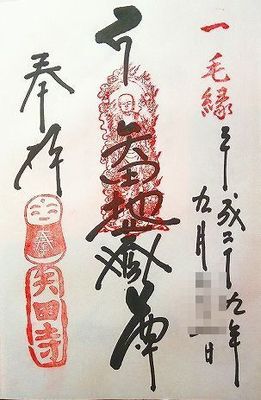 一毛縁
平成二十九年
九月 日
矢田地蔵尊
奉拝
矢田寺